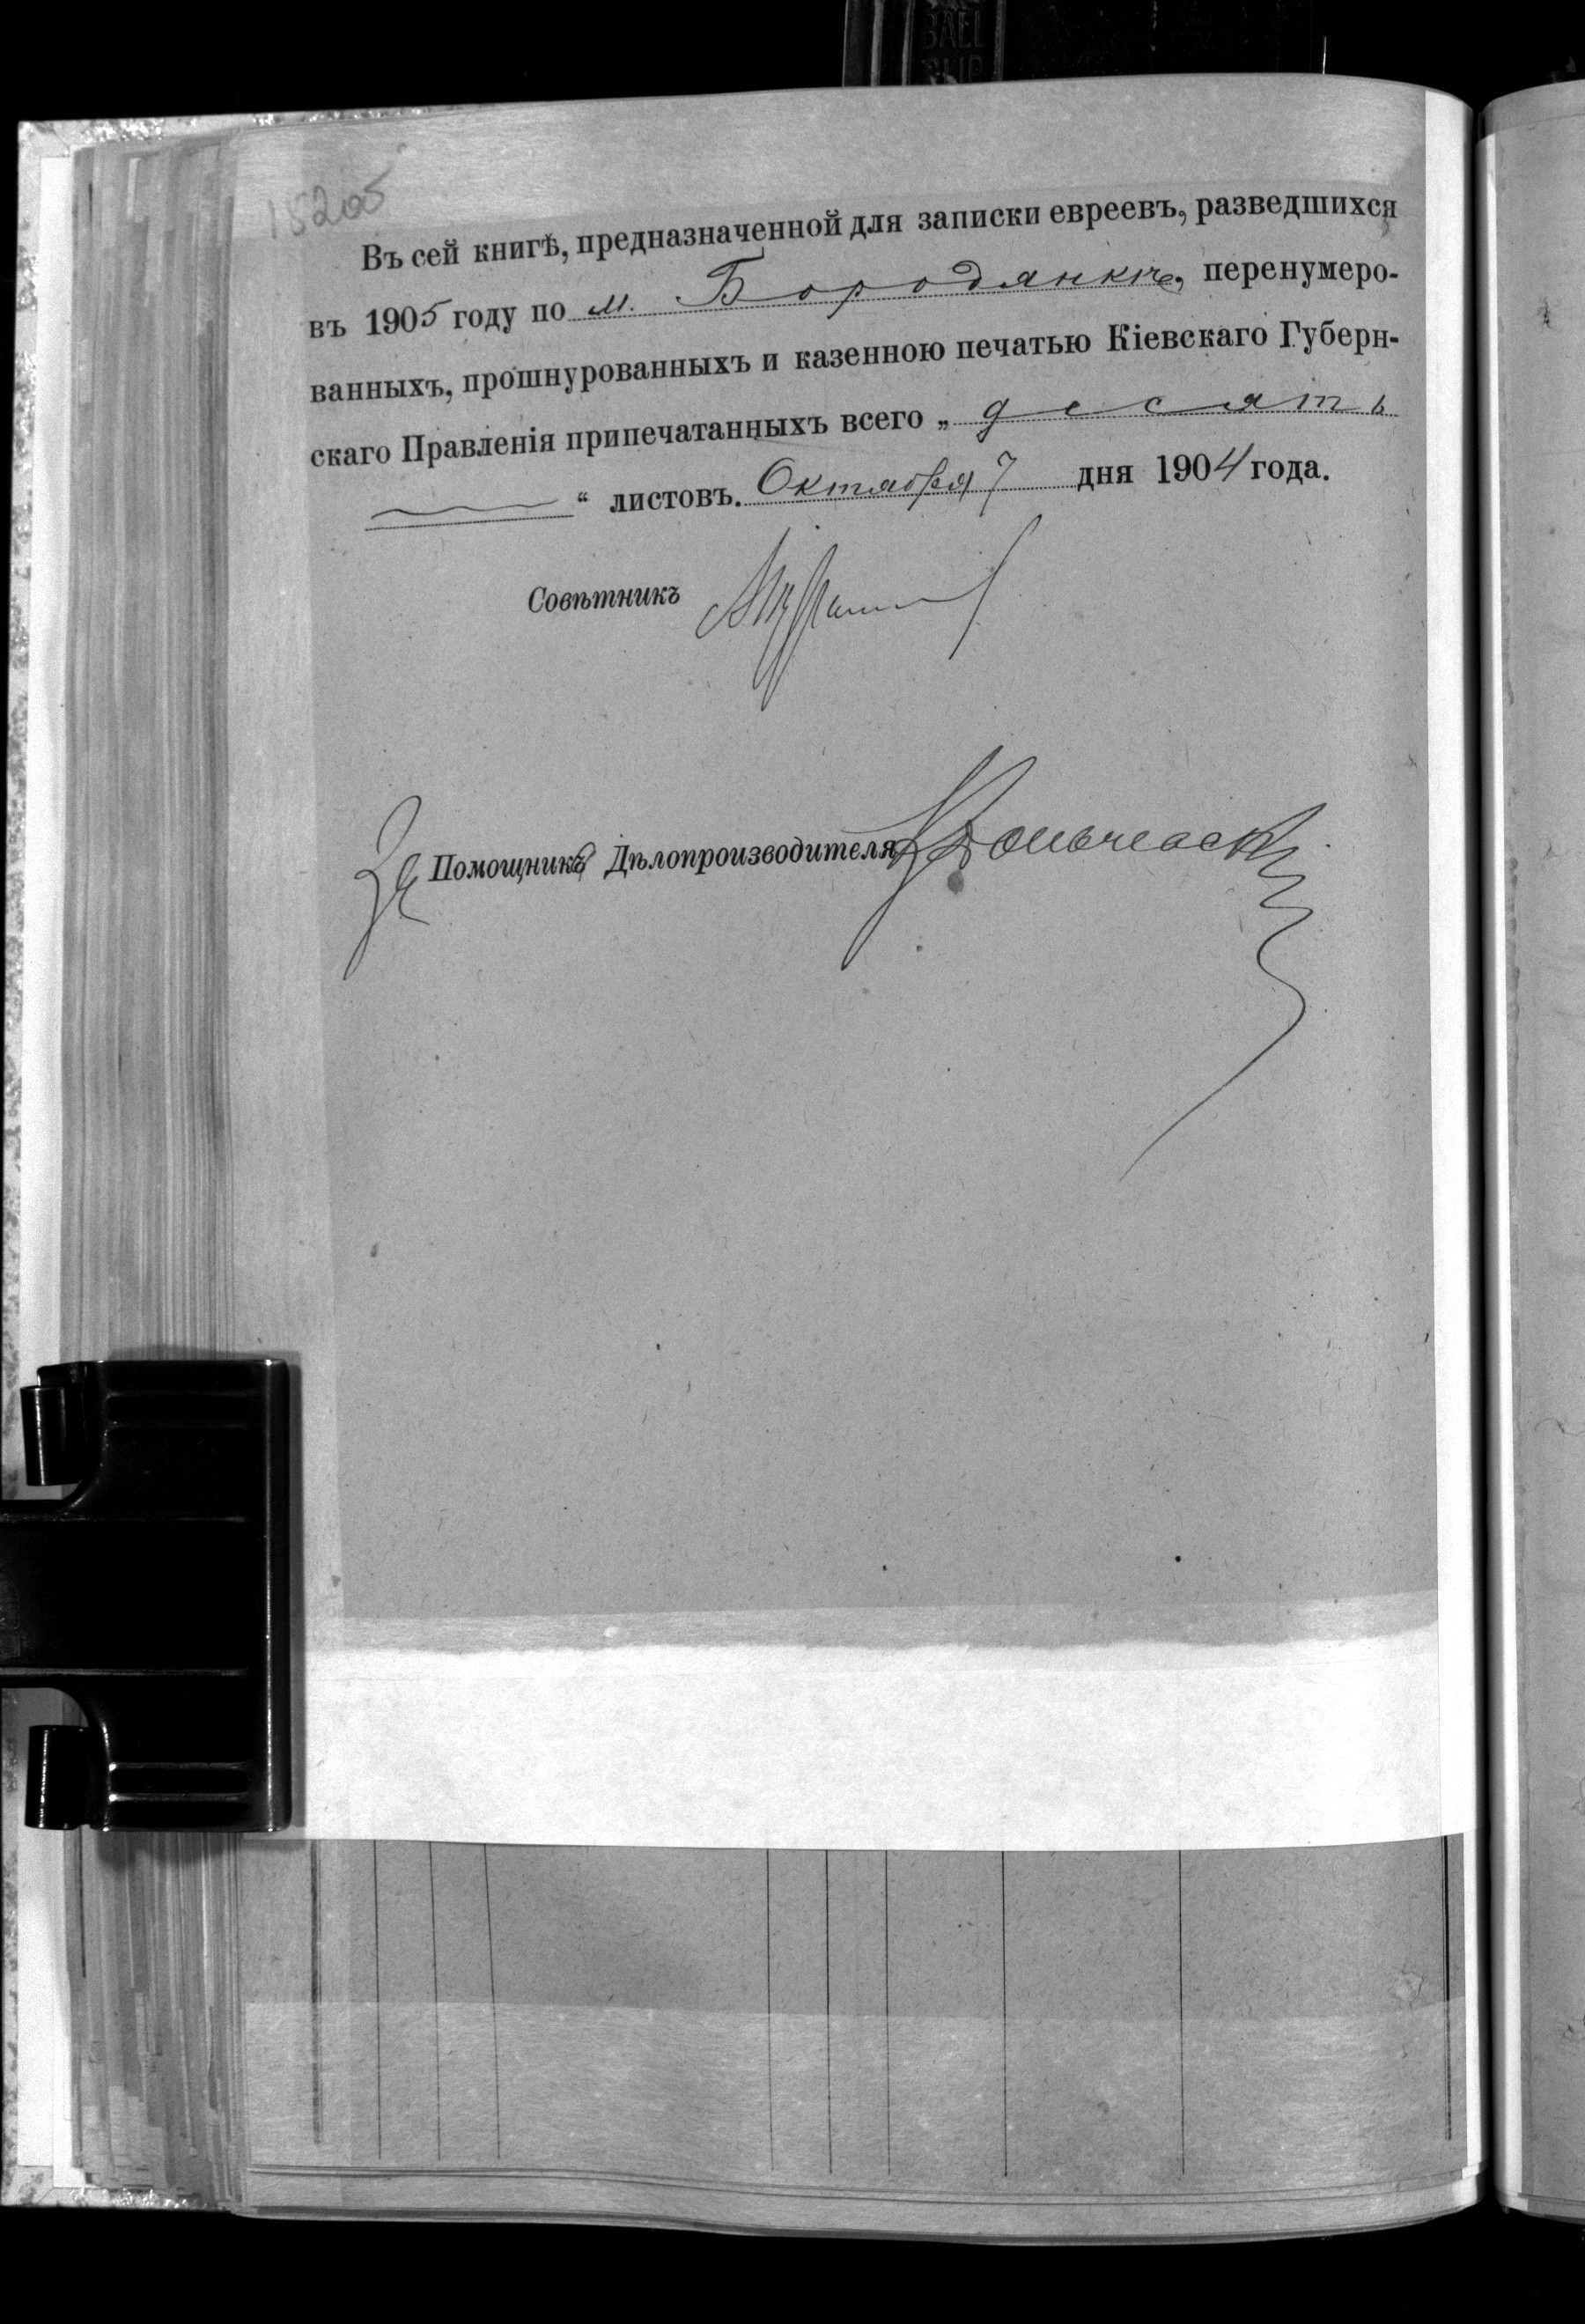 Въ сей книгѣ, предназначенной для записки евреевъ, разведшихся
въ 1905 году по м. Бородянкѣ, перенумеро-
ванныхъ, прошнурованныхъ и казенною печатью Кіевскаго Губерн-
скаго Правленія припечатанныхъ всего „десять
“ листовъ. Октября 7 дня 1904 года.
Совѣтникъ
За Помощника Дѣлопроизводителя